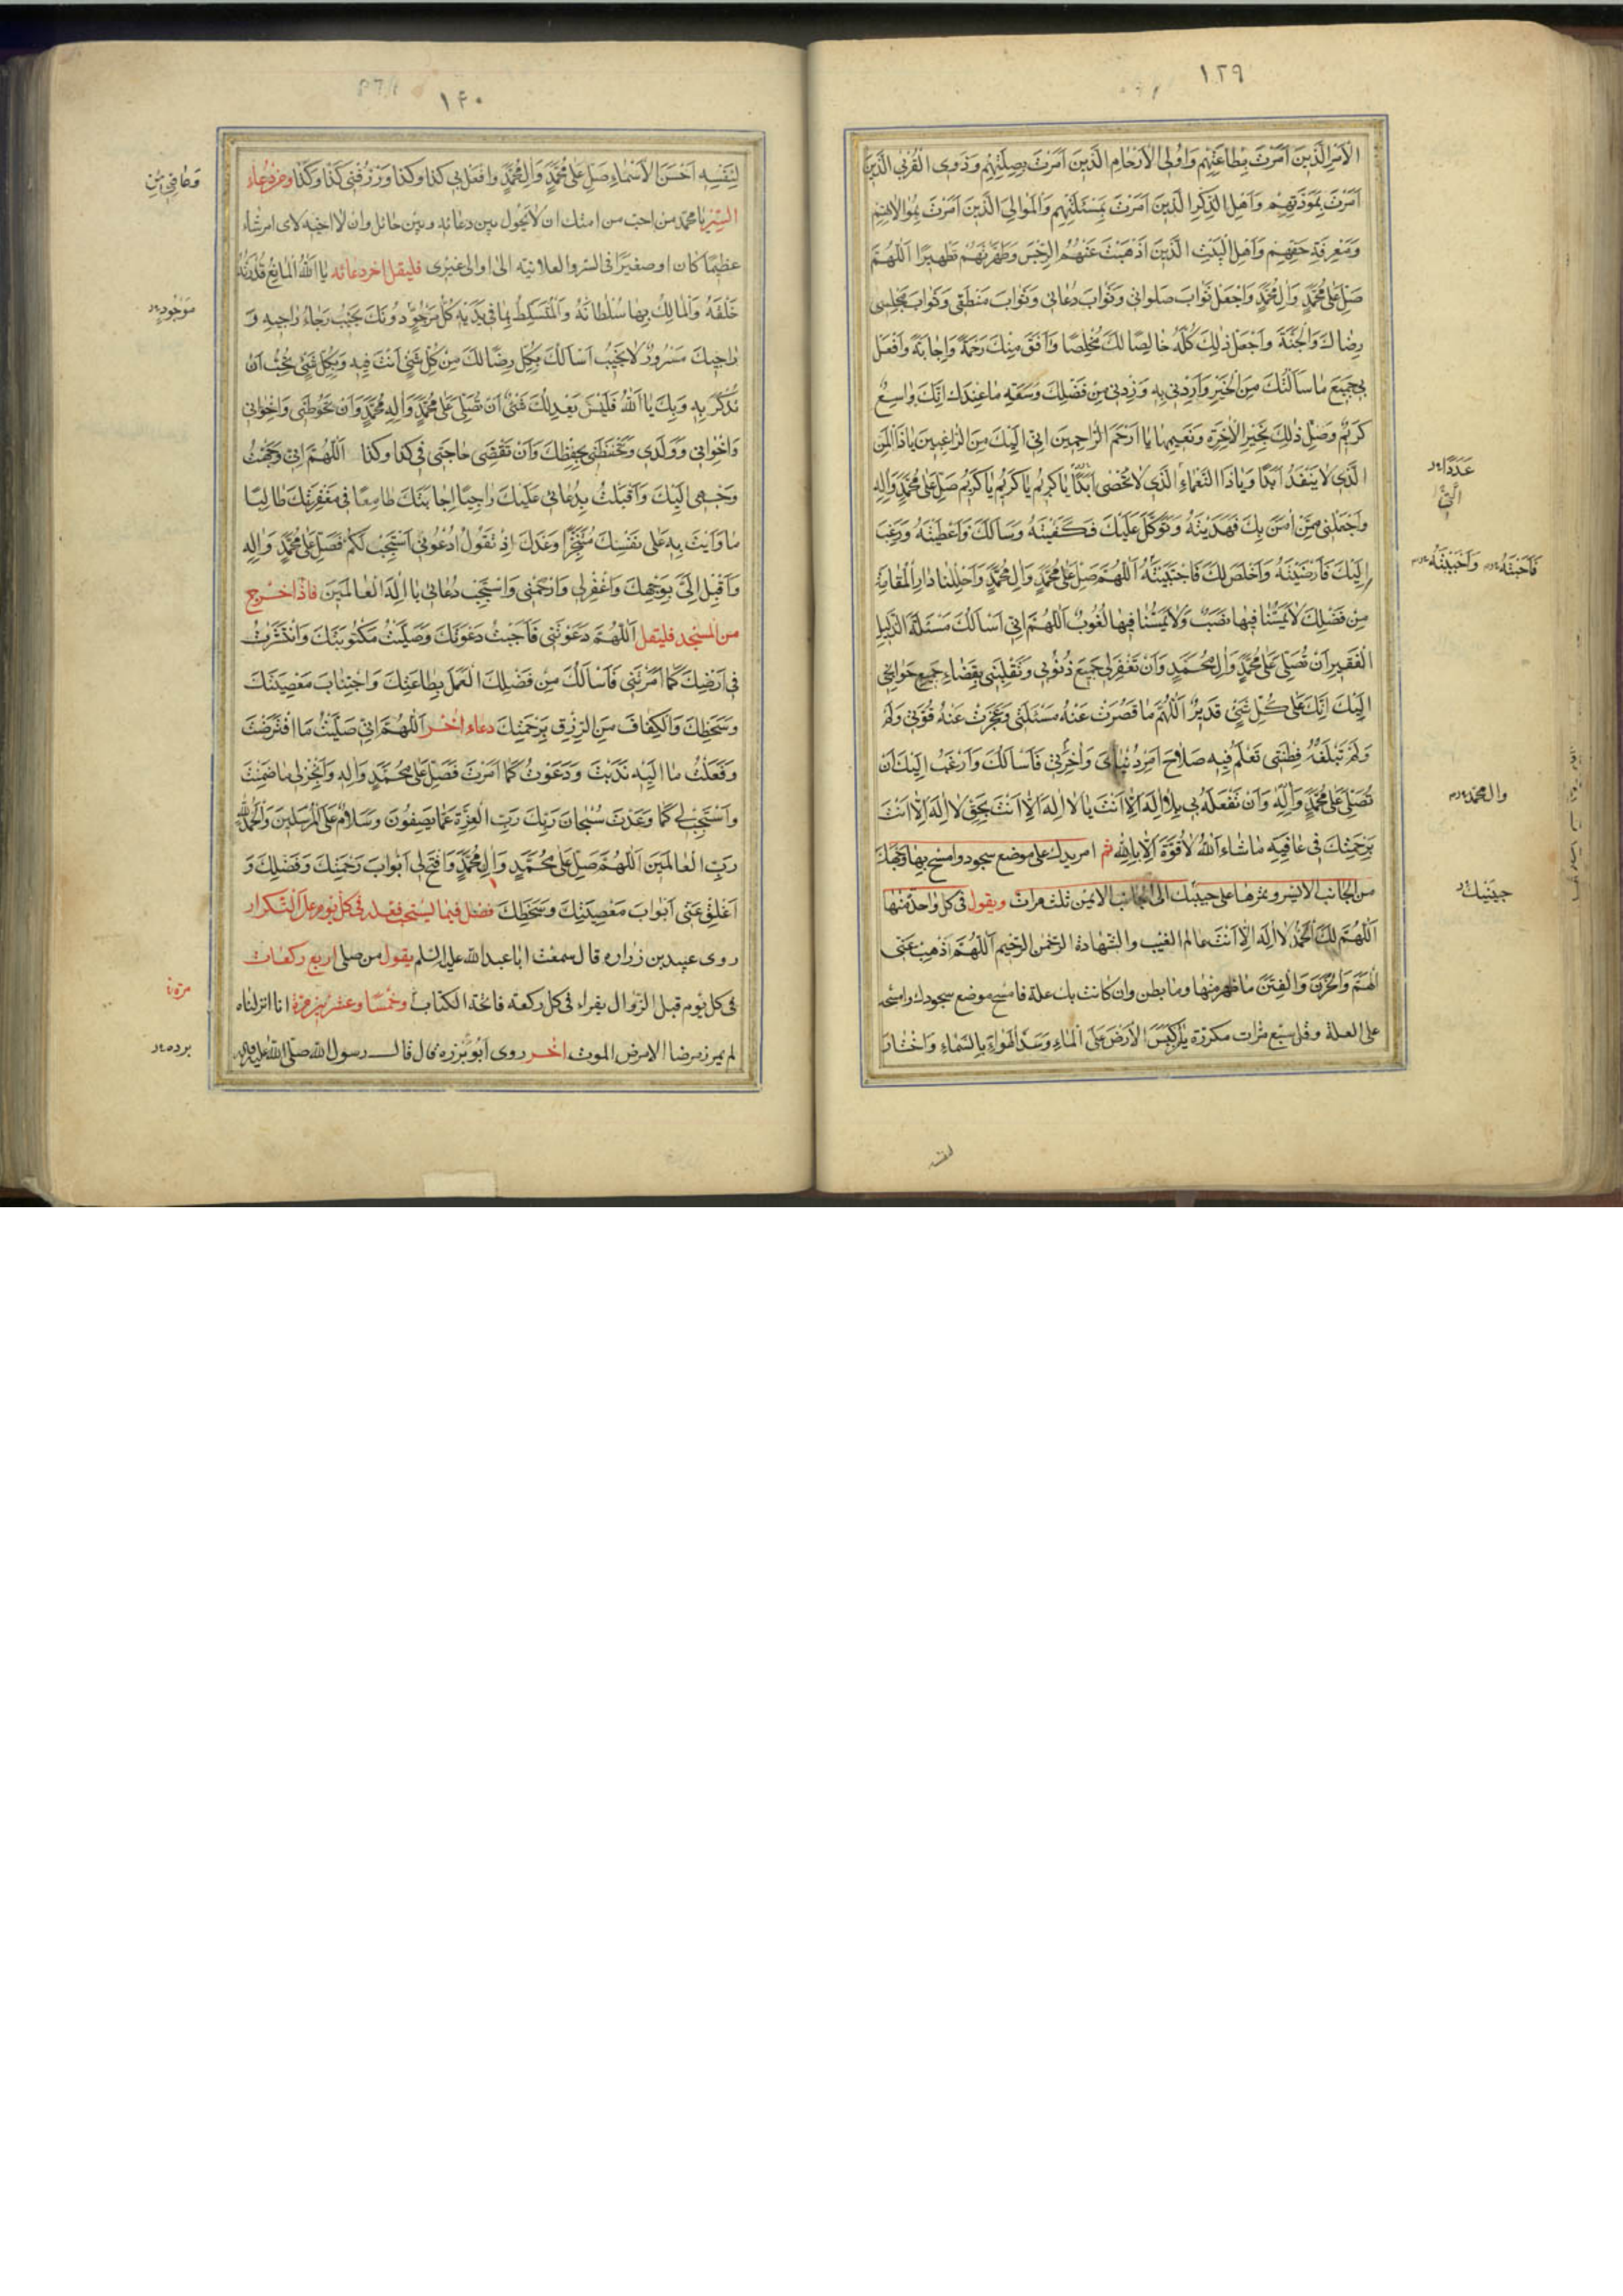 ١٢٩
الامر الذين امرت بطاعتهم واولى الارحام الذين امرت بصلتهم وذوى القربى الذين
امرت بمودتهم واهل الذكر الذين امرت بمسئلتهم والموالى الذين امرت بموالاتهم
ومعرفة حقهم واهل البيت الذين اذهبت عنهم الرجس وطهرتهم تطهيرا اللهم
صل على محمد وال محمد واجعل ثواب صلواتى وثواب دعائى وثواب منطقى وثواب مجلسى
رضاك والجنة واجعل ذلك كله خالصا لك مخلصا وافق منك رحمة واجابة وافعل
بى جميع ما سالتك من الخير واردنى به وزدنى من فضلك وسعة ما عندك انك واسع
كريم وصل ذلك بخير الاخرة ونعيمها يا ارحم الراحمين انى اليك من الراغبين يا ذا المن
الذى لا ينفد ابدا ويا ذا النعماء الذى لا تحصى ابدا يا كريم يا كريم يا كريم صل على محمد واله
عددا
التى
واجعلنى ممن امن بك فهديته وتوكل عليك فكفيته وسالك فاعطيته ورغب
اليك فارضيته واخلص لك فاجتبيته اللهم صل على محمد وال محمد واحللنا دار المقامة
فاحبته واحببته
من فضلك لا يمسنا فيها نصب ولا يمسنا فيها لغوب اللهم انى اسالك مسئلة الذليل
الفقير ان تصلى على محمد وال محمد وان تغفر لى جميع ذنوبى وتقلبنى بقضاء جميع حوائجى
اليك انك على كل شئ قدير اللهم ما قصرت عنه مسئلتى وعجزت عنه قوتى ولم
ولم تبلغه فطنتى تعلم فيه صلاح امر دنياى واخرتى فاسالك وارغب اليك ان
تصلى على محمد واله وان تفعله بى بلا اله الا انت يا لا اله الا انت بحق لا اله الا انت
وال محمد
برحمتك فى عافية ما شاء الله لا قوة الا بالله ثم امر يدك على موضع سجود وامسح بها وجهك
من الجانب الايسر وتمرها على جبينك الى الجانب الايمن ثلث مرات ويقول فى كل واحد منها
جبينك
اللهم لك الحمد لا اله الا انت عالم الغيب والشهادة الرحمن الرحيم اللهم اذهب عنى
الهم والحزن والفتن ما ظهر منها وما بطن وان كانت بك علة فامسح موضع سجودك وامسحه
على العلة وقل سبع مرات مكررة يا من كبس الارض على الماء وسد الهواء بالسماء واختار
١۴٠
لنفسه احسن الاسماء صل على محمد وال محمد وافعل بى كذا وكذا وارزقنى كذا وكذا ومن دعاء
وعافنى من
السر يا محمد من احب من امتك ان لا يحول بين دعائه وبين حائل وان لا اخيبه لاى امر شاء
عظيما كان او صغيرا فى السر والعلانية الى او الى غيرى فليقل اخر دعائه يا الله المانع قدرته
خلقه والمالك بها سلطانه والمتسلط بما فى يديه كل مرجو دونك يخيب رجاء راجيه و
موجود
راجيك مسرور لا يخيب اسالك بكل رضا لك من كل شئ انت فيه وبكل شئ تحب ان
تذكر به وبك يا الله فليس يعدلك شئ ان تصلى على محمد واله محمد وان تحوطنى واخوانى
واخواتى وولدى وتحفظنى بحفظك وان تقضى حاجتى فى كذا وكذا اللهم انى وجهت
وجهى اليك واقبلت بدعائى عليك راجيا اجابتك طامعا فى مغفرتك طالبا
ما وايت به على نفسك متنجزا وعدك اذ تقول ادعونى استجب لكم فصل على محمد واله
واقبل الى بوجهك واغفر لى وارحمنى واستجب دعائى يا اله العالمين فاذا خرج
من المسجد فليقل اللهم دعوتنى فاجبت دعوتك وصليت مكتوبتك وانتشرت
فى ارضك كما امرتنى فاسالك من فضلك العمل بطاعتك واجتناب معصيتك
وسخطك والكفاف من الرزق برحمتك دعاء اخر اللهم انى صليت ما افترضت
وفعلت ما اليه ندبت ودعوت كما امرت فصل على محمد واله وانجز لى ما ضمنت
واستجب لى كما وعدت سبحان ربك رب العزة عما يصفون وسلام على المرسلين والحمد لله
رب العالمين اللهم صل على محمد وال محمد وافتح لى ابواب رحمتك وفضلك و
اغلق عنى ابواب معصيتك وسخطك فصل فيما يستحب فعله فى كل يوم على التكرار
روى عبيد بن زراره قال سمعت ابا عبد الله عليه السلم يقول من صلى اربع ركعات
فى كل يوم قبل الزوال يقراء فى كل ركعة فاتحة الكتاب وخمسا وعشرين مرة انا انزلناه
مرة
لم يمرض مرضا الا مرض الموت اخر روى ابو برزه قال قال رسول الله صلى الله عليه واله
برده